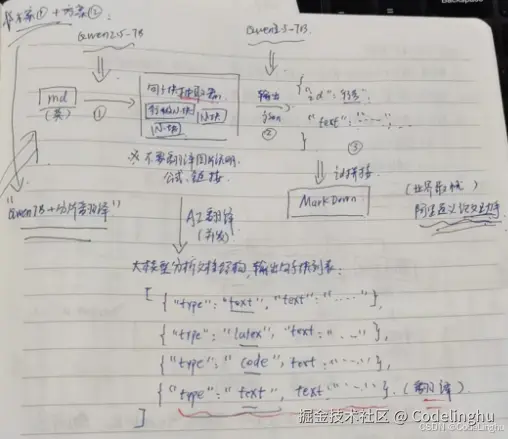 方案①+方案②
Qwen2.5-7B
Qwen2.5-7B
md
(英)
①
句子块
小块
小块
输出
json
②
{
"id": "
"text": "……"
}
③
※ 不要翻译图片说明、
公式、链接
MarkDown
"Qwen7B+
AI翻译
(并发)
大模型分析文档结构,输出句子块列表:
[
{"type": "text", "text": "……"},
{"type": "latex", "text": "……"},
{"type": "code", text: "……"},
{"type": "text", text: "……"}.(翻译)
]
掘金技术社区 @ Codelinghu
CSDN @Codelinghu